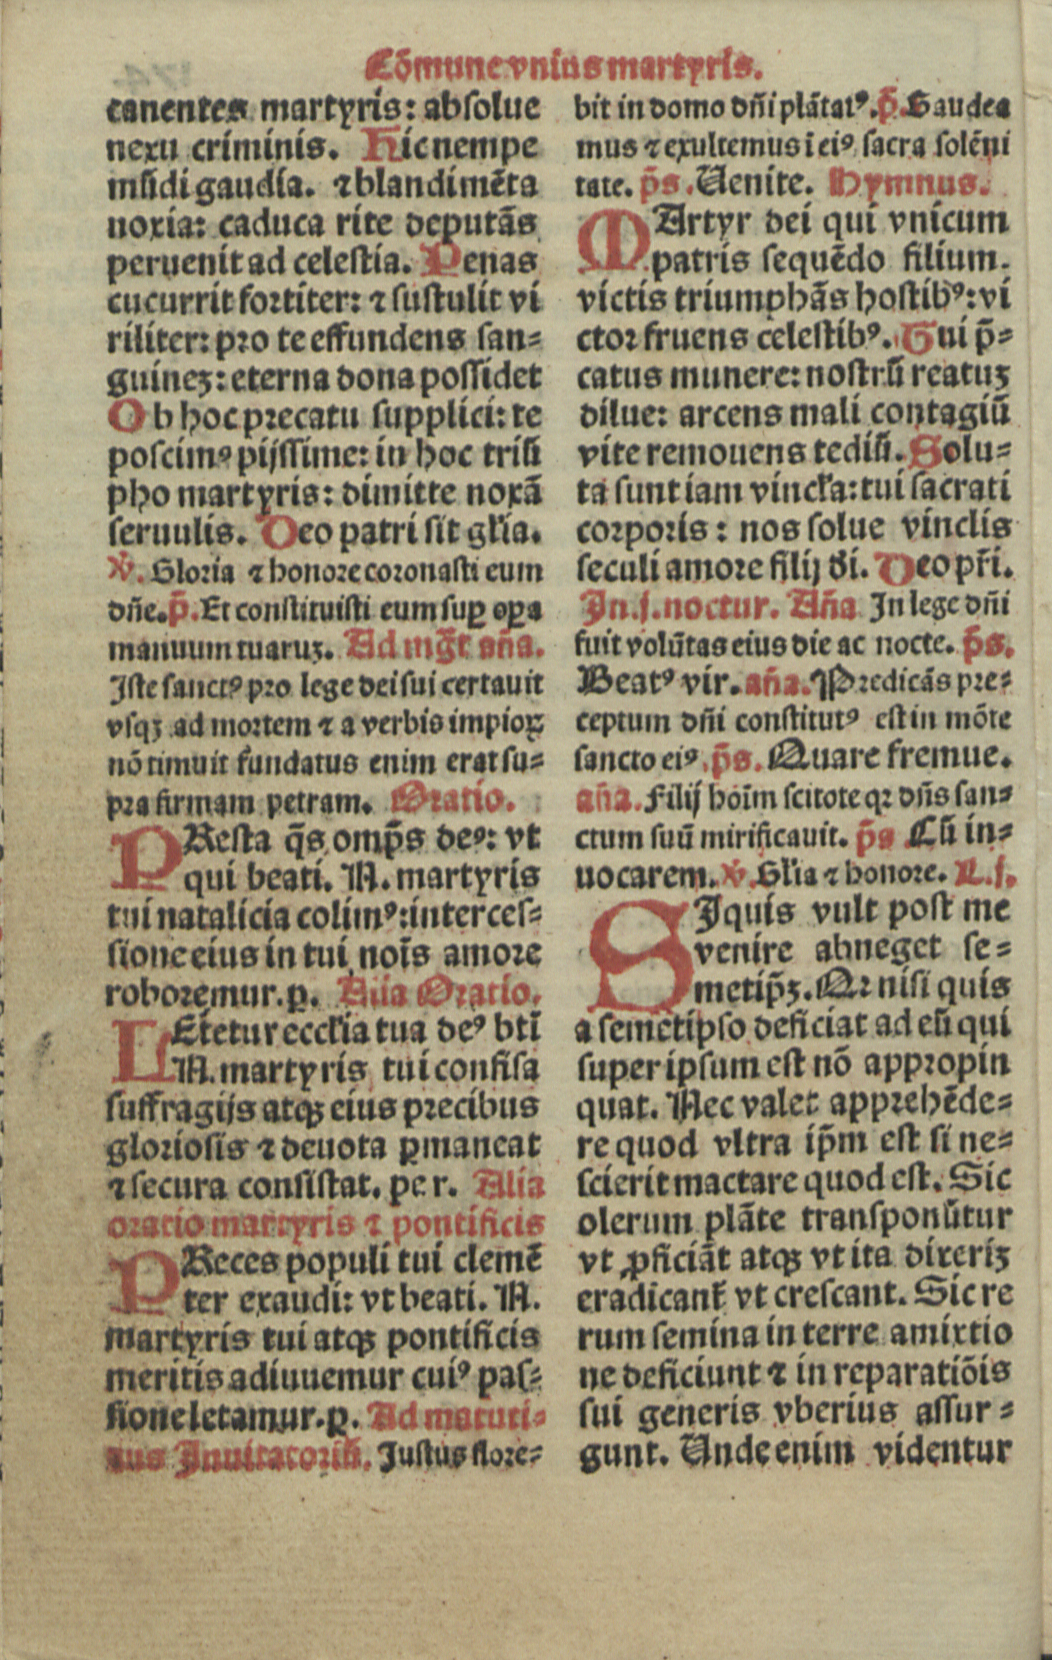 Cõmune vnius martyris.
canentes martyris: absolue
nexu criminis. Hic nempe
mũdi gaudia. ⁊ blandimẽta
noxia: caduca rite deputãs
peruenit ad celestia. Penas
cucurrit fortiter: ⁊ sustulit vi
riliter: pro te effundens san⸗
guineʒ: eterna dona possidet
Ob hoc precatu supplici: te
poscimꝰ pijssime: in hoc triũ
pho martyris: dimitte noxã
seruulis. Deo patri sit glĩa.
℣. Gloria ⁊ honore coronasti eum
dñe. p̃. Et constituisti eum sup̱ op̱a
manuum tuaruʒ. Ad mgr̃t aña.
Iste sanctꝰ pro lege dei sui certauit
vsqʒ ad mortem ⁊ a verbis impioꝝ
nõ timuit fundatus enim erat su⸗
pra firmam petram. Oratio.
PResta q̃s omp̃s deꝰ: vt
qui beati. N. martyris
tui natalicia colimꝰ: interces⸗
sione eius in tui noĩs amore
roboremur. ꝑ. Alia Oratio.
LEtetur ecclĩa tua deꝰ btĩ
N. martyris tui confisa
suffragijs atqʒ eius precibus
gloriosis ⁊ deuota ꝑmaneat
⁊ secura consistat. per. Alia
oratio martyris ⁊ pontificis
PReces populi tui clemẽ
ter exaudi: vt beati. N.
martyris tui atqʒ pontificis
meritis adiuuemur cuiꝰ pas⸗
sione letamur. ꝑ. Ad matuti⸗
nus Inuitatoriũ. Iustus flore⸗
bit in domo dñi plãtatꝰ. p̃. Gaudea
mus ⁊ exultemus i eiꝰ sacra solẽni
tate. p̃s. Uenite. Hymnus.
MArtyr dei qui vnicum
patris sequẽdo filium.
victis triumphãs hostibꝰ: vi
ctor fruens celestibꝰ. Gui p̃⸗
catus munere: nostrũ reatuʒ
dilue: arcens mali contagiũ
vite remouens tediũ. Solu⸗
ta sunt iam vincla: tui sacrati
corporis: nos solue vinclis
seculi amore filij d̃i. Deo pr̃i.
In. j. noctur. Aña In lege dñi
fuit volũtas eius die ac nocte. p̃s.
Beatꝰ vir. aña. Predicãs pre⸗
ceptum dñi constitutꝰ est in mõte
sancto eiꝰ. p̃s. Quare fremue.
aña. Filij hoĩm scitote qꝛ dñs san⸗
ctum suũ mirificauit. p̃s Cũ in⸗
uocarem. ℣. Glĩa ⁊ honore. L. j.
SIquis vult post me
venire abneget se⸗
metip̃ʒ. Qꝛ nisi quis
a semetipso deficiat ad eũ qui
super ipsum est nõ appropin
quat. Nec valet apprehẽde⸗
re quod vltra ip̃m est si ne⸗
scierit mactare quod est. Sic
olerum plãte transponũtur
vt ꝓficiãt atqʒ vt ita dixeriʒ
eradicant᷑ vt crescant. Sic re
rum semina in terre amixtio
ne deficiunt ⁊ in reparatiõis
sui generis vberius assur⸗
gunt. Unde enim videntur